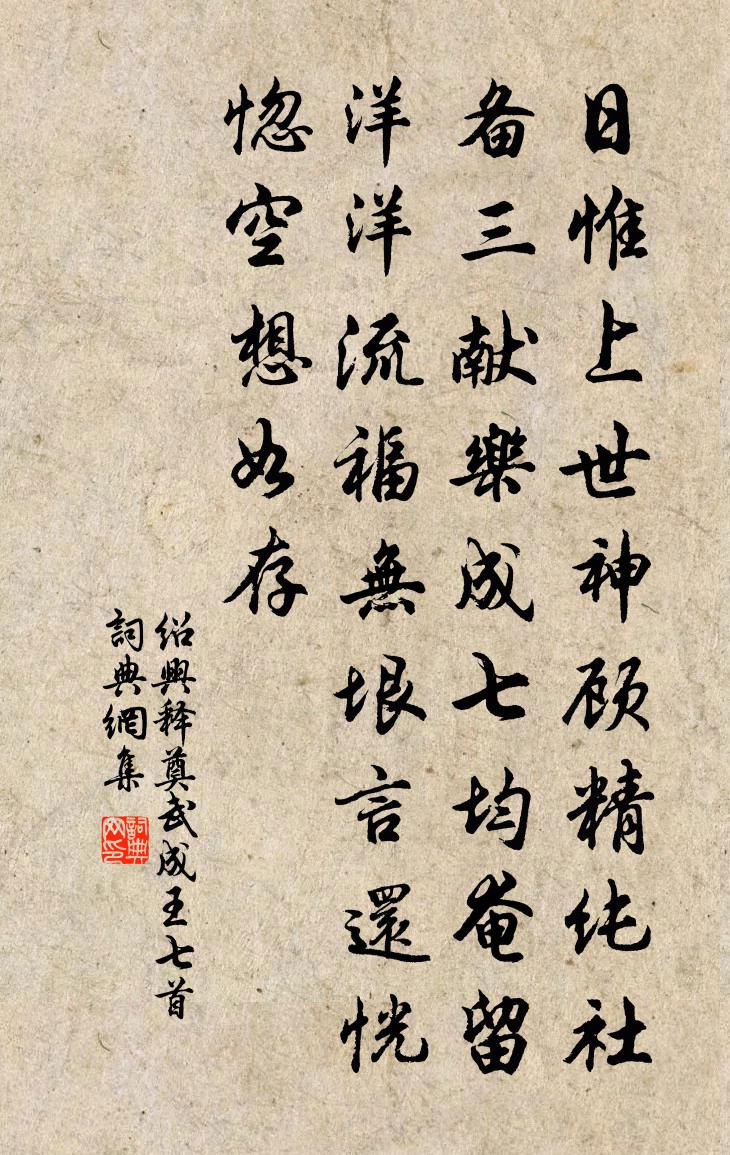 日惟上世神顾精纯社
备三献樂成七均奄留
洋洋流福無垠言還恍
惚空想如存
绍興释奠武成王七首
詞典網集
詞典网印